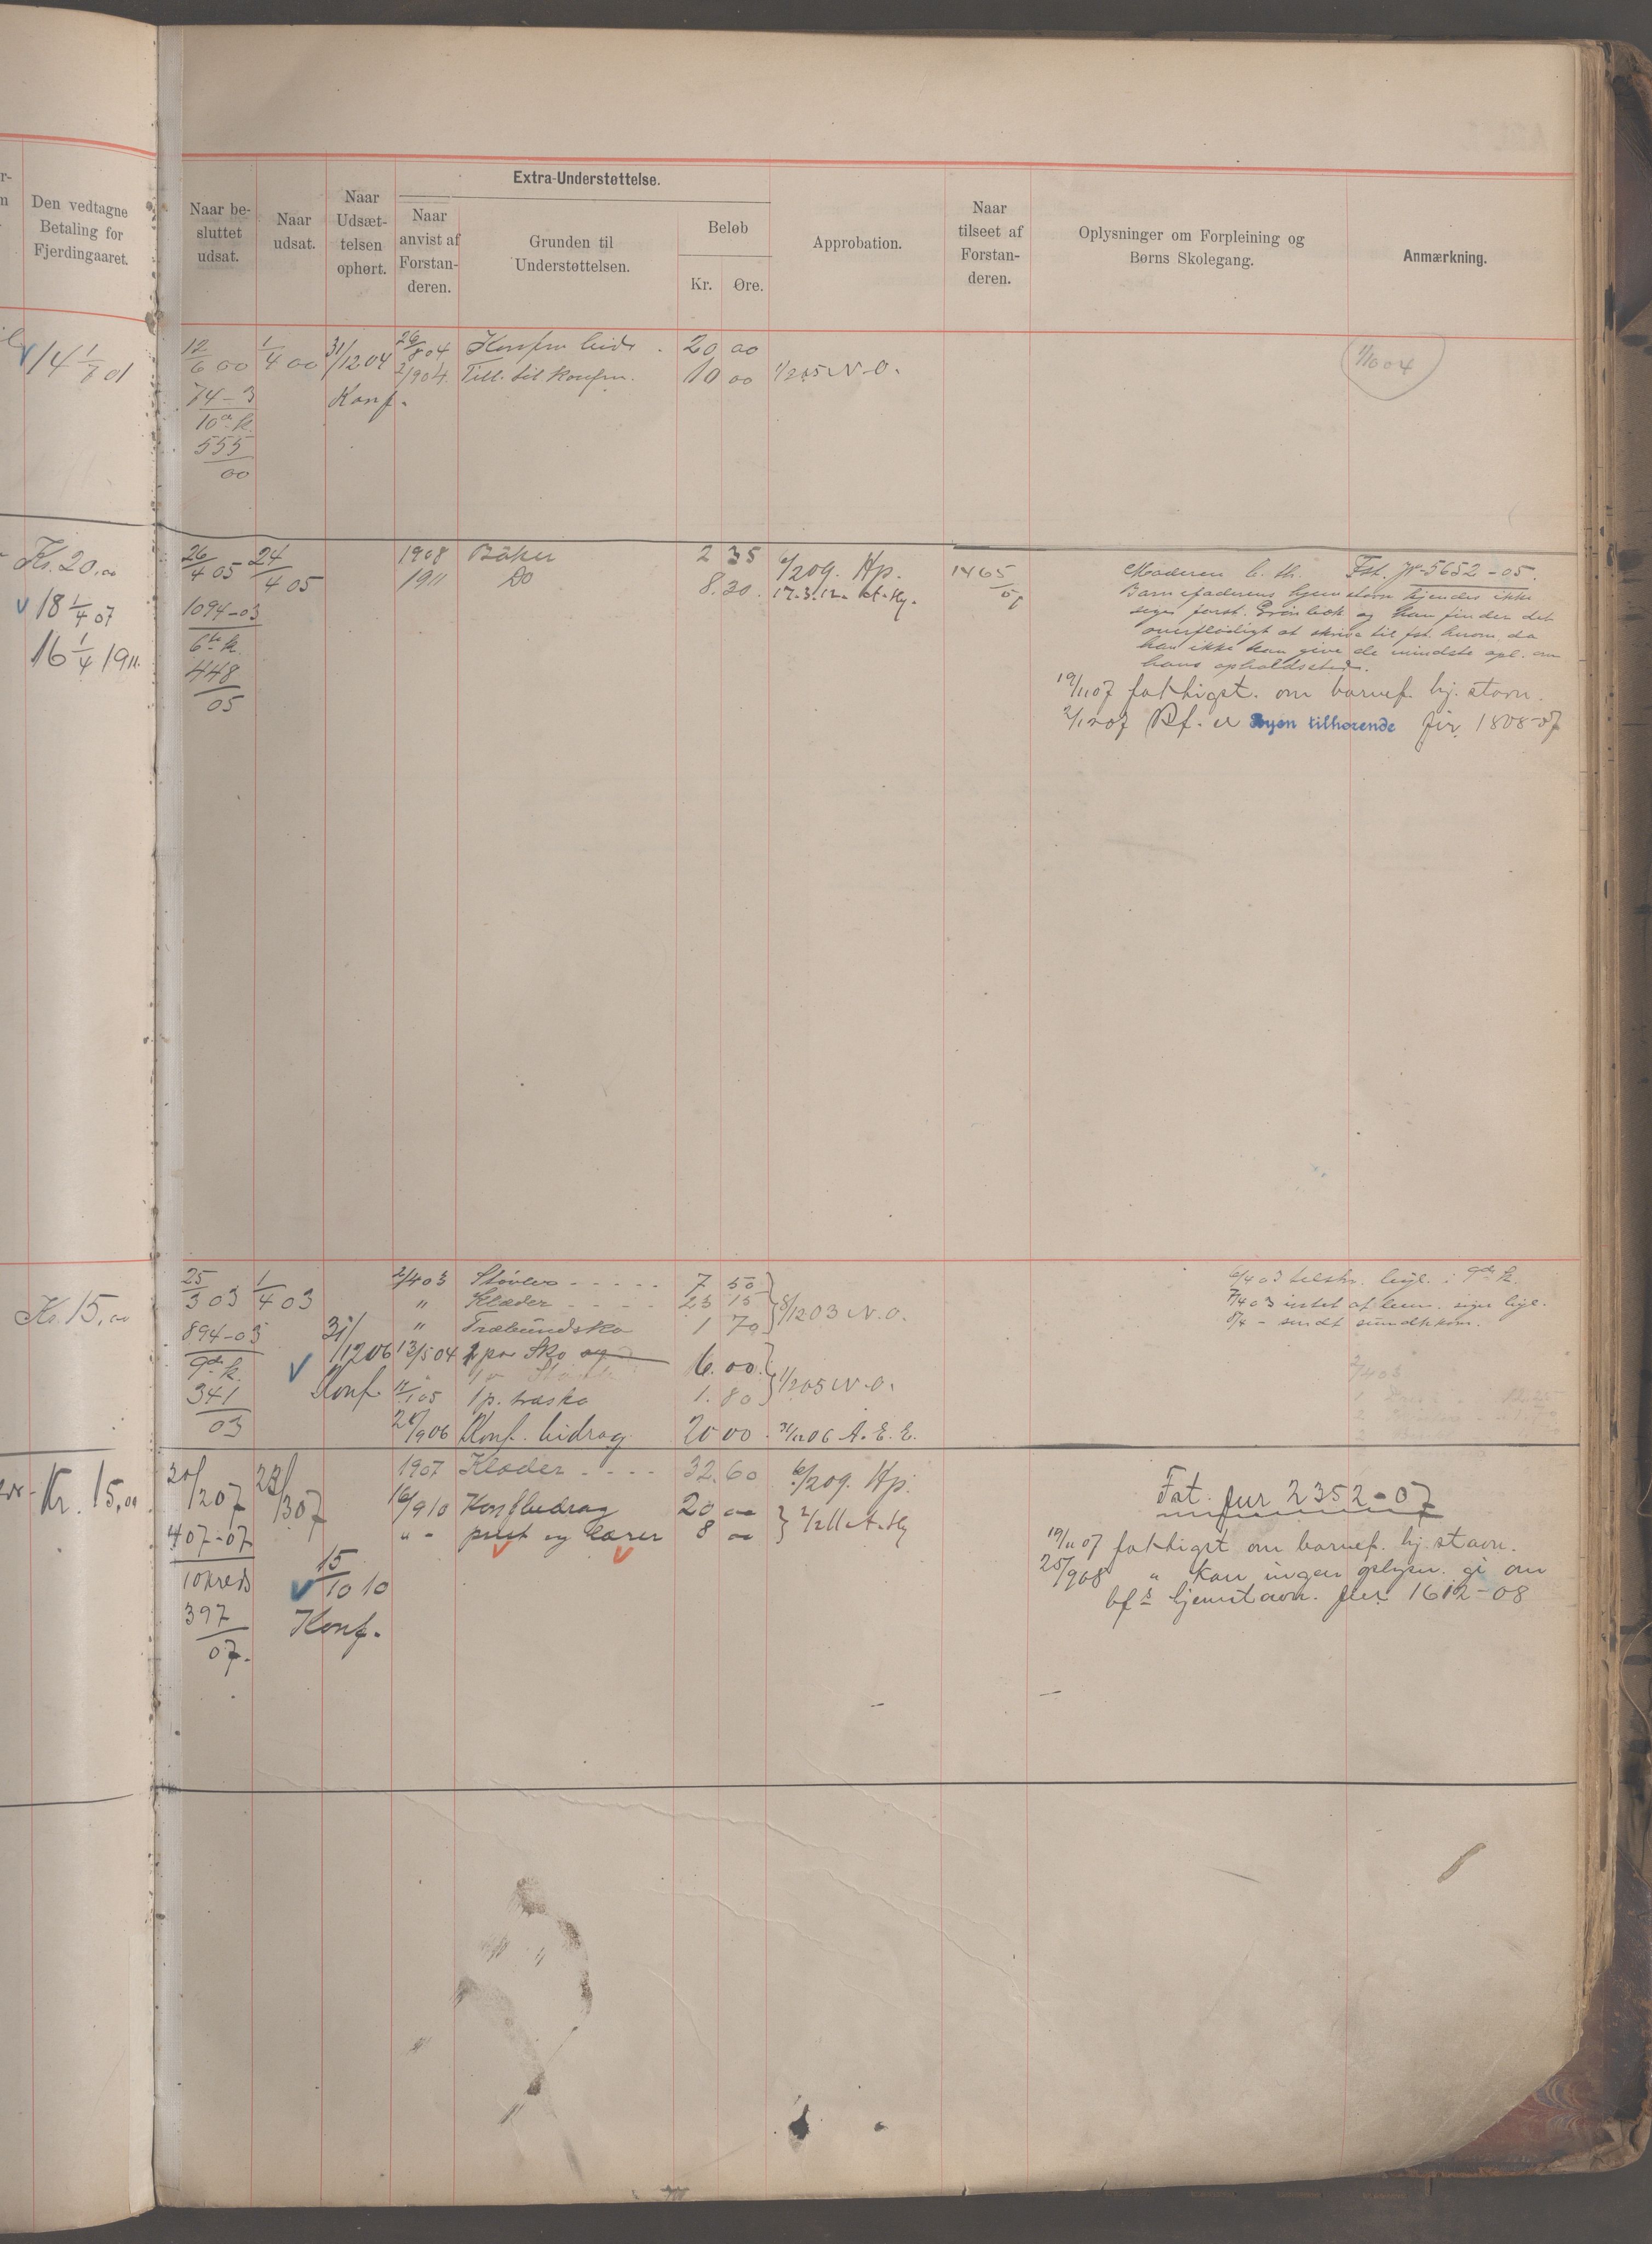 Den vedtagne
Betaling for
Fjerdingaaret.
Naar be-
sluttet
udsat.
Naar
udsat.
Naar
Udsæt-
telsen
ophørt.
Extra-Understøttelse.
Naar
anvist af
Forstan-
deren.
Grunden til
Understøttelsen.
Beløb
Kr. Øre.
Approbation.
Naar
tilseet af
Forstan-
deren.
Oplysninger om Forpleining og
Børns Skolegang.
Anmærkning.
14 1/7 01
12/6 00 1/4 00 31/12 04 26/8 04 Konfm bidr. 20 00
2/9 04 Till. til konfm. 10 00 1/2 05 N. O.
1/10 04
74-3 Konf.
10de k.
555
00
Kr. 20,00
26/4 05 24/4 05 1908 Bøker 2 35 6/2 09. Hp.
1911 Do 8.30. 17.3.12. A.Hg.
1465
18 1/4 07
1094-03
6te k.
448
05
16 1/4 1911.
Moderen b. th. Fst. jr-5652-05.
Barnefaderens hjemstavn kjendes ikke
siger forst. Grønbæk og han finder det
overflødigt at skrive til fst. herom, da
han ikke kan give de mindste opl. om
hans opholdssted.
19/11 07 fattigst. om barnef. hj. stavn.
2/12 07 Bf. er Byen tilhørende jvr. 1808-07
Kr. 15,00
25/3 03 1/4 03 2/4 03 Støvler 7 50
" Klæder 23 15 8/12 03 N. O.
" Træbundsko 1 70
894-03 31/12 06 13/5 04 1 par Sko og 6.00
9de k.
341
03
Konf. 12/1 05 1 p. træsko 1.80 1/2 05 N. O.
28/9 06 Konf. bidrag 20 00 A. E. E.
6/4 03 tilskr. lige. i 9de k.
7/4 03 intet at bem. siger lige.
8/4 - sendt sundhkom.
Kr. 15,00
20/12 07 23/3 07 1907 Klæder 32.60 6/2 09. Hp.
16/9 10 Konfbidrag 20 00
" - prest og lærer 8 00 2/2 11 A. Hg
407-07
10 kreds
397
07.
15/10 10
Konf.
Fat. jur 2352-07
19/11 07 fattigst om barnef. hj. stavn.
25/9 08 " kan ingen oplysn. gi om
bfs hjemstavn. jur. 1612-08